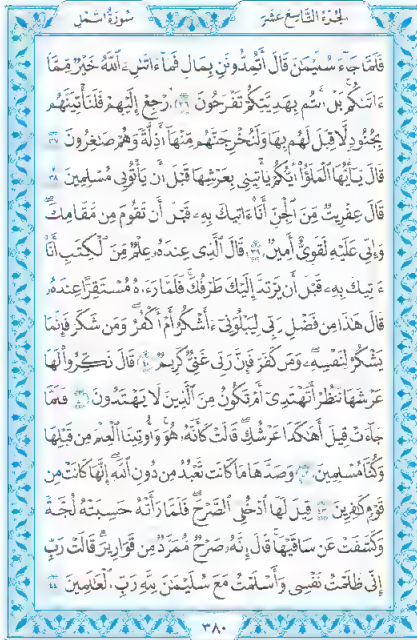 الجزء التاسع عشر سورة النمل
فَلَمَّا جَآءَ سُلَيْمَٰنَ قَالَ أَتُمِدُّونَنِ بِمَالٍ فَمَآ ءَاتَىٰنِۦَ ٱللَّهُ خَيْرٌ مِّمَّآ
ءَاتَىٰكُم بَلْ أَنتُم بِهَدِيَّتِكُمْ تَفْرَحُونَ ٣٦ ٱرْجِعْ إِلَيْهِمْ فَلَنَأْتِيَنَّهُم
بِجُنُودٍ لَّا قِبَلَ لَهُم بِهَا وَلَنُخْرِجَنَّهُم مِّنْهَآ أَذِلَّةً وَهُمْ صَٰغِرُونَ ٣٧
قَالَ يَٰٓأَيُّهَا ٱلْمَلَؤُا۟ أَيُّكُمْ يَأْتِينِى بِعَرْشِهَا قَبْلَ أَن يَأْتُونِى مُسْلِمِينَ ٣٨
قَالَ عِفْرِيتٌ مِّنَ ٱلْجِنِّ أَنَا۠ ءَاتِيكَ بِهِۦ قَبْلَ أَن تَقُومَ مِن مَّقَامِكَ
وَإِنِّى عَلَيْهِ لَقَوِىٌّ أَمِينٌ ٣٩ قَالَ ٱلَّذِى عِندَهُۥ عِلْمٌ مِّنَ ٱلْكِتَٰبِ أَنَا۠
ءَاتِيكَ بِهِۦ قَبْلَ أَن يَرْتَدَّ إِلَيْكَ طَرْفُكَ فَلَمَّا رَءَاهُ مُسْتَقِرًّا عِندَهُۥ
قَالَ هَٰذَا مِن فَضْلِ رَبِّى لِيَبْلُوَنِىٓ ءَأَشْكُرُ أَمْ أَكْفُرُ وَمَن شَكَرَ فَإِنَّمَا
يَشْكُرُ لِنَفْسِهِۦ وَمَن كَفَرَ فَإِنَّ رَبِّى غَنِىٌّ كَرِيمٌ ٤٠ قَالَ نَكِّرُوا۟ لَهَا
عَرْشَهَا نَنظُرْ أَتَهْتَدِىٓ أَمْ تَكُونُ مِنَ ٱلَّذِينَ لَا يَهْتَدُونَ ٤١ فَلَمَّا
جَآءَتْ قِيلَ أَهَٰكَذَا عَرْشُكِ قَالَتْ كَأَنَّهُۥ هُوَ وَأُوتِينَا ٱلْعِلْمَ مِن قَبْلِهَا
وَكُنَّا مُسْلِمِينَ ٤٢ وَصَدَّهَا مَا كَانَت تَّعْبُدُ مِن دُونِ ٱللَّهِ إِنَّهَا كَانَتْ مِن
قَوْمٍ كَٰفِرِينَ ٤٣ قِيلَ لَهَا ٱدْخُلِى ٱلصَّرْحَ فَلَمَّا رَأَتْهُ حَسِبَتْهُ لُجَّةً
وَكَشَفَتْ عَن سَاقَيْهَا قَالَ إِنَّهُۥ صَرْحٌ مُّمَرَّدٌ مِّن قَوَارِيرَ قَالَتْ رَبِّ
إِنِّى ظَلَمْتُ نَفْسِى وَأَسْلَمْتُ مَعَ سُلَيْمَٰنَ لِلَّهِ رَبِّ ٱلْعَٰلَمِينَ ٤٤
٣٨٠